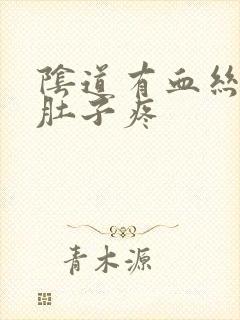 陰道有血絲
肚子疼
青木源